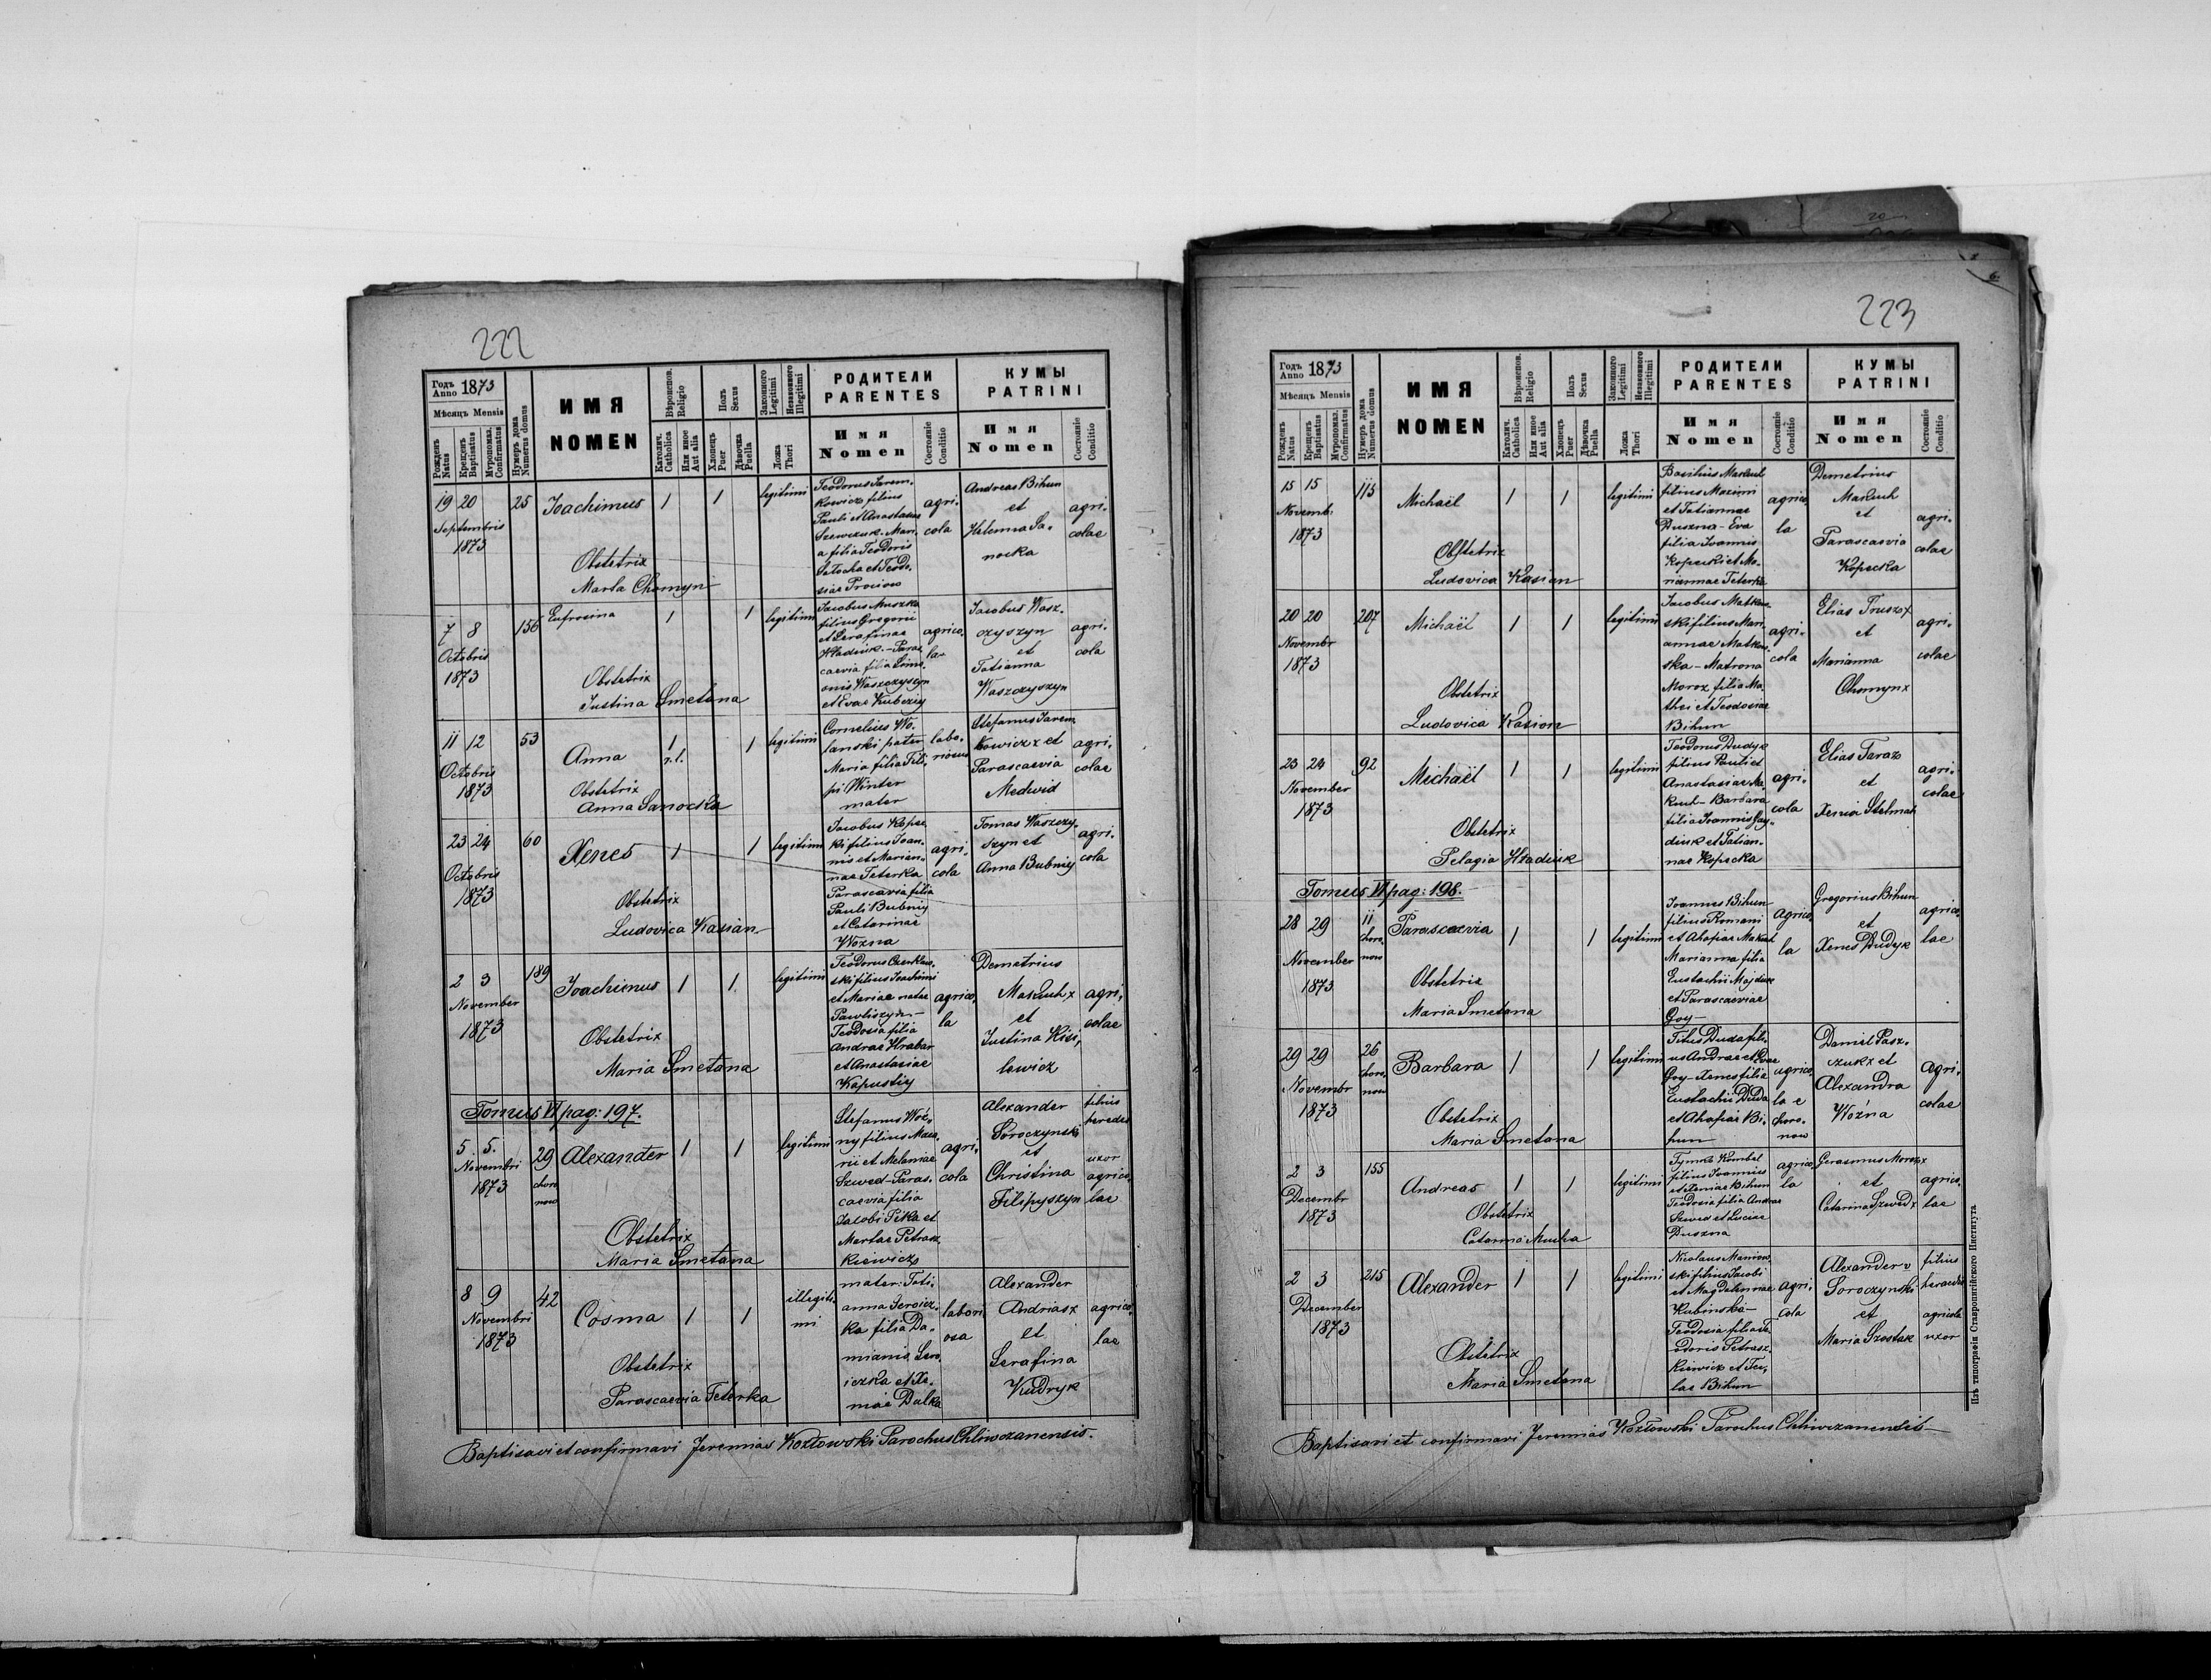 222
Годъ Anno 1873
Мѣсяцъ Mensis
Рожденъ Natus
Крещенъ Baptisatus
Мѵропомаз. Confirmatus
Нумеръ дома Numerus domus
ИМЯ
NOMEN
Вѣроиспов. Religio
Католич. Catholica
Или иное Aut alia
Полъ Sexus
Хлопецъ Puer
Дѣвочка Puella
Законного Legitimi
Незаконного Illegitimi
Ложа Thori
РОДИТЕЛИ
PARENTES
Имя
Nomen
Состояніе Conditio
КУМЫ
PATRINI
Имя
Nomen
Состояніе Conditio
19 20 Septembris 1873
25
Joachimus
1 1
legitimi
Teodorus Jarem-
kowicz filius
Pauli et Anastasiae
Szewczuk - Mari-
a filia Teodoris
et Teodo-
siae
agri-
cola
Andreas Bihun
et
Helenna Sa-
nocka
agri-
colae
Obstetrix
Marta Chomyn
7 8 Octobris 1873
156
Eufrosina
1 1
legitimi
Jacobus Muszka
filius Gregorii
et Serafinae
Hladiuk - Paras-
caevia filia Simo-
onis Waszczyszyn
et Evae Kubeziy
agrico-
la
Jacobus Wasz-
czyszyn
et
Tatianna
Waszczyszyn
agri-
cola
Obstetrix
Justina Smetana
11 12 Octobris 1873
53
Anna
1 r.l. 1
legitimi
Cornelius Wo-
lanski pater
Maria filia Fili-
pi Winter
mater
labo-
riosus
Stefanus Jarem-
kowicz x et
Parascaevia
Medwid
agri-
colae
Obstetrix
Anna Sanocka
23 24 Octobris 1873
60
Xenes
1 1
legitimi
Jacobus Kopec-
ki filius Joan-
nis et Marian-
nae Teterka
Parascavia filia
Pauli Bubniy
et Catarinae
Wozna
agri-
cola
Tomas Waszczy-
szyn et
Anna Bubniy
agri-
cola
Obstetrix
Ludovica Kasian
2 3 November 1873
189
Joachimus
1 1
legitimi
Teodorus
ski filius Joachimi
et Mariae natae
Pawliszyn -
Teodosia filia
Andrae Hrabar
et Anastasiae
Kapustiy
agrico-
la
Demetrius
Makuch x
et
Justina Kisi-
lewicz
agri-
colae
Obstetrix
Maria Smetana
Tomus VI pag: 197.
5. 5. Novembri 1873
29 choro now
Alexander
1 1
legitimi
Stefanus Woź-
ny filius Maca-
rii et Melaniae
Szwed - Paras-
caevia filia
Jacobi Pika et
Martae Petrasz-
kiewicz
agri-
cola
Alexander
Soroczynski
et
Christina
Filipyszyn
filius
heredis
uxor
agrico-
lae
Obstetrix
Maria Smetana
8 9 Novembri 1873
42
Cosma
1 1
illegiti-
mi
mater: Tati-
anna Seroicz-
ka filia Da-
mianis Sero-
iczka et Xe-
niae Dalka
labori-
osa
Alexander
Andrias x
et
Serafina
Kudryk
agrico-
lae
Obstetrix
Parascaevia Teterka
Baptisavi et confirmavi Jeremias Kozłowski Parochus Chliwczanensis.
6.
223
Годъ Anno 1873
Мѣсяцъ Mensis
Рожденъ Natus
Крещенъ Baptisatus
Мѵропомаз. Confirmatus
Нумеръ дома Numerus domus
ИМЯ
NOMEN
Вѣроиспов. Religio
Католич. Catholica
Или иное Aut alia
Полъ Sexus
Хлопецъ Puer
Дѣвочка Puella
Законного Legitimi
Незаконного Illegitimi
Ложа Thori
РОДИТЕЛИ
PARENTES
Имя
Nomen
Состояніе Conditio
КУМЫ
PATRINI
Имя
Nomen
Состояніе Conditio
15 15 Novemb. 1873
113
Michaël
1 1
legitimi
Basilius Makuch
filius Maximi
et Tatiannae
Duszna - Eva
filia Joannis
Kopecki et Ma-
riannae Teterka
agrico-
la
Demetrius
Makuch
et
Parascaevia
Kopecka
agri-
colae
Obstetrix
Ludovica Kasian
20 20 Novembr 1873
207
Michaël
1 1
legitimi
Jacobus Matkow-
ski filius Mari-
annae Matkow-
ska - Matrona
Moroz filia Ma-
thei et Teodosiae
Bihun
agri-
cola
Elias Trusz x
et
Marianna
Chomyn x
agri-
colae
Obstetrix
Ludovica Kasion
23 24 November 1873
92
Michaël
1 1
legitimi
Teodorus Dudyk
filius Pauli et
Anastasiae Ma-
kuch - Barbara
filia Joannis Hay-
diuk et Tatian-
nae Kopecka
agri-
cola
Elias Taraz
et
Xenia Stelmach
agri-
colae
Obstetrix
Pelagia Hładiuk
Tomus VI pag: 198.
28 29 November 1873
11 choro now
Parascaevia
1 1
legitimi
Joannes Bihun
filius Romani
et Ahafiae Makuch
Marianna filia
Eustachii Majduk
et Parascaeviae
Goy -
Agrico-
la
Gregorius Bihun
et
Xenes Dudyk
agrico-
lae
Obstetrix
Maria Smetana
29 29 Novembr 1873
26 choro now
Barbara
1 1
legitimi
Titus Duda fili-
us Andrae et Evae
Goy - Xenes filia
Eustachii Duda
et Ahafiae Bi-
hun
agrico-
la e
choro-
now
Daniel Pasz-
czuk x et
Alexandra
Woźna
Agri-
colae
Obstetrix
Maria Smetana
2 3 Decembr 1873
155
Andreas
1 1
legitimi
Tymko Kombel
filius Joannis
et Xeniae Bihun
Teodosia filia Andrae
Szwed et Luciae
Duszna
agrico-
la
Gerasmus Moroz x
et
Catarina Szwed x
agrico-
lae
Obstetrix
Catarina Mucha
2 3 December 1873
215
Alexander
1 1
legitimi
Nicolaus Maniow-
ski filius Jacobi
et Magdalennae
Kubinska -
Teodosia filia Te-
odoris Petrasz-
kiewicz et Tec-
lae Bihun
agri-
cola
Alexander
Soroczynski
et
Maria Szostak
filius
heraedis
agricolae
uxor
Obstetrix
Maria Smetana
Baptisavi et confirmavi Jeremias Kozłowski Parochus Chliwczanensis -
Изъ типографіи Ставропигійского Института.